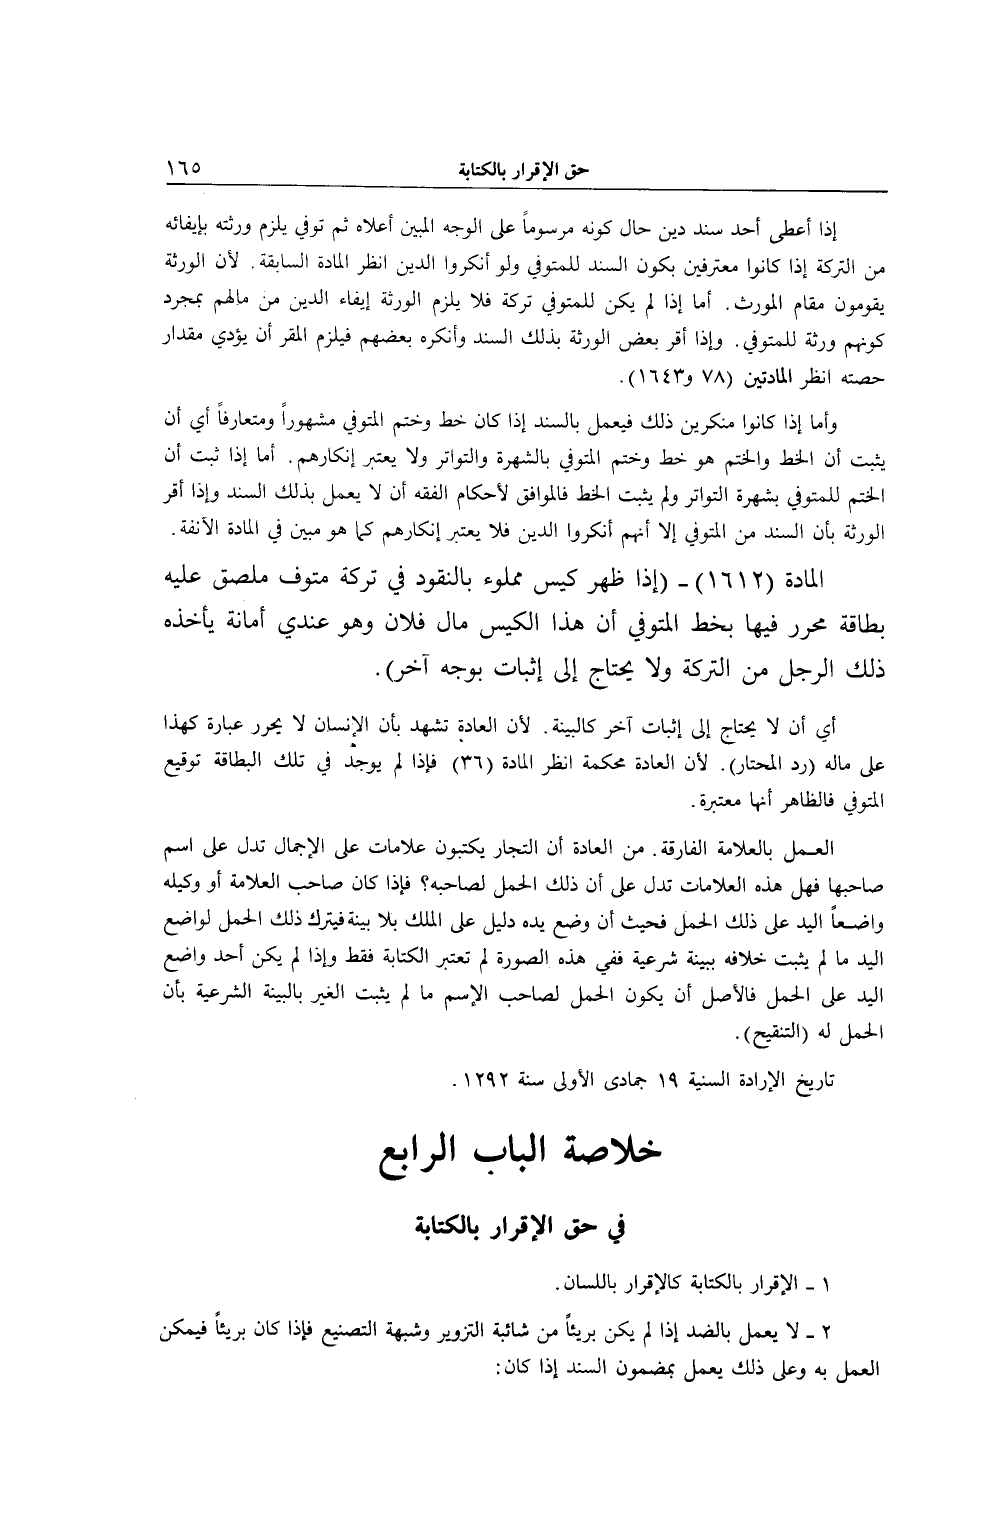 حق الإقرار بالكتابة ١٦٥
إذا أعطى أحد سند دين حال كونه مرسوماً على الوجه المبين أعلاه ثم توفي يلزم ورثته بإيفائه
من التركة إذا كانوا معترفين بكون السند للمتوفي ولو أنكروا الدين انظر المادة السابقة. لأن الورثة
يقومون مقام المورث. أما إذا لم يكن للمتوفي تركة فلا يلزم الورثة إيفاء الدين من مالهم بمجرد
كونهم ورثة للمتوفي. وإذا أقر بعض الورثة بذلك السند وأنكره بعضهم فيلزم المقر أن يؤدي مقدار
حصته انظر المادتين (٧٨ و١٦٤٣).
وأما إذا كانوا منكرين ذلك فيعمل بالسند إذا كان خط وختم المتوفي مشهوراً ومتعارفاً أي أن
يثبت أن الخط والختم هو خط وختم المتوفي بالشهرة والتواتر ولا يعتبر إنكارهم. أما إذا ثبت أن
الختم للمتوفي بشهرة التواتر ولم يثبت الخط فالموافق لأحكام الفقه أن لا يعمل بذلك السند وإذا أقر
الورثة بأن السند من المتوفي إلا أنهم أنكروا الدين فلا يعتبر إنكارهم كما هو مبين في المادة الآنفة.
المادة (١٦١٢) ـ (إذا ظهر كيس مملوء بالنقود في تركة متوف ملصق عليه
بطاقة محرر فيها بخط المتوفي أن هذا الكيس مال فلان وهو عندي أمانة يأخذه
ذلك الرجل من التركة ولا يحتاج إلى إثبات بوجه آخر).
أي أن لا يحتاج إلى إثبات آخر كالبينة. لأن العادة تشهد بأن الإنسان لا يحرر عبارة كهذا
على ماله (رد المحتار). لأن العادة محكمة انظر المادة (٣٦) فإذا لم يوجد في تلك البطاقة توقيع
المتوفي فالظاهر أنها معتبرة.
العمل بالعلامة الفارقة. من العادة أن التجار يكتبون علامات على الإجمال تدل على اسم
صاحبها فهل هذه العلامات تدل على أن ذلك الحمل لصاحبه؟ فإذا كان صاحب العلامة أو وكيله
واضعاً اليد على ذلك الحمل فحيث أن وضع يده دليل على الملك بلا بينة فيترك ذلك الحمل لواضع
اليد ما لم يثبت خلافه ببينة شرعية ففي هذه الصورة لم تعتبر الكتابة فقط وإذا لم يكن أحد واضع
اليد على الحمل فالأصل أن يكون الحمل لصاحب الإسم ما لم يثبت الغير بالبينة الشرعية بأن
الحمل له (التنقيح).
تاريخ الإرادة السنية ١٩ جمادى الأولى سنة ١٢٩٢.
خلاصة الباب الرابع
في حق الإقرار بالكتابة
١ ـ الإقرار بالكتابة كالإقرار باللسان.
٢ ـ لا يعمل بالضد إذا لم يكن بريئاً من شائبة التزوير وشبهة التصنيع فإذا كان بريئاً فيمكن
العمل به وعلى ذلك يعمل بمضمون السند إذا كان: